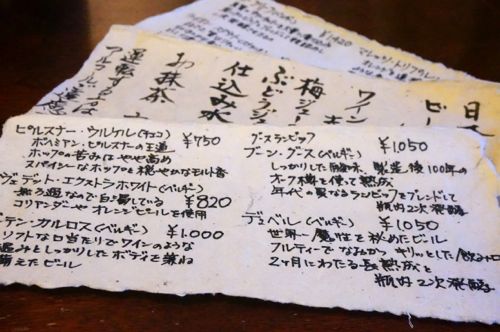 ¥1,420
マレッツ・トリプル(ベルギー)
日本
ビー
ワイン
梅ジュー
ぶどうジュ
仕込み水
お抹茶
運転する
アルコール
ピルスナー・ウルケル(チェコ) ¥750
ボヘミアン・ピルスナーの王道
ホップの苦みはやや高め
スパイシーなホップと穏やかなモルト香
ヴェデット・エクストラホワイト(ベルギー)
瓶ろ過なので白く濁っている ¥820
コリアンダーやオレンジピールを使用
テン・カルロス(ベルギー) ¥1.000
ソフトな口当たりでワインのような
温みとしっかりしたボディを兼ね
備えたビール
グースランビック ¥1,050
ブーン・グース(ベルギー)
しっかりした酸味 製造後100年の
オーク樽を使って熟成
年代の異なるランビックをブレンドして
瓶内2次発酵
デュベル(ベルギー) ¥1,050
世界一魔性を秘めたビール
フルーティでなめらか キリッとした飲み口
2ヶ月にわたる長熟成と
瓶内2次発酵